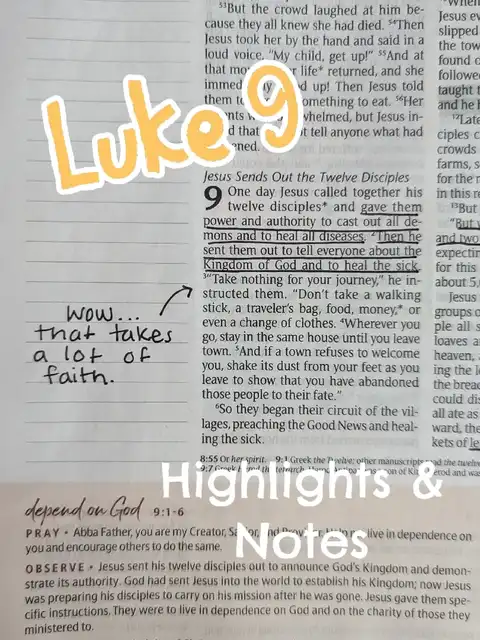 53But the crowd laughed at him be-
cause they all knew she had died. 54Then
Jesus took her by the hand and said in a
loud voice, "My child, get up!" 55And at
that life* returned, and she
up! Then Jesus told
them something to eat. 56Her
whelmed, but Jesus in-
that tell anyone what had
Luke 9
Jesus Sends Out the Twelve Disciples
9 One day Jesus called together his
twelve disciples* and gave them
power and authority to cast out all de-
mons and to heal all diseases. 2Then he
sent them out to tell everyone about the
Kingdom of God and to heal the sick.
3"Take nothing for your journey," he in-
structed them. "Don't take a walking
stick, a traveler's bag, food, money,* or
even a change of clothes. 4Wherever you
go, stay in the same house until you leave
town. 5And if a town refuses to welcome
you, shake its dust from your feet as you
leave to show that you have abandoned
those people to their fate."
6So they began their circuit of the vil-
lages, preaching the Good News and heal-
ing the sick.
wow...
that takes
a lot of
faith.
Jesus
slipped
the tow
found o
followe
taught t
and he h
12Late
ciples c
crowds
farms, s
for the n
in this r
13But
"But y
and two
expectin
for this
about 5,
Jesus
groups o
ple all s
loaves a
heaven,
ing the l
the brea
could dis
all ate as
ward, the
kets of le
8:55 Or her spirit. 9:1 Greek the Twelve; other manuscripts read the twelve
9:7
Highlights &
Notes
depend on God 9:1-6
PRAY • Abba Father, you are my Creator, live in dependence on
you and encourage others to do the same.
OBSERVE • Jesus sent his twelve disciples out to announce God's Kingdom and demon-
strate its authority. God had sent Jesus into the world to establish his Kingdom; now Jesus
was preparing his disciples to carry on his mission after he was gone. Jesus gave them spe-
cific instructions. They were to live in dependence on God and on the charity of those they
ministered to.